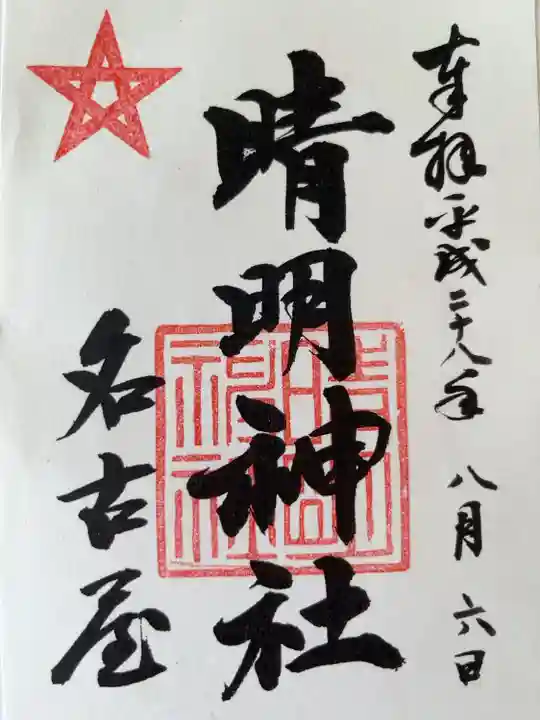 奉拝平成二十八年八月六日
晴明神社
名古屋
晴明
神社